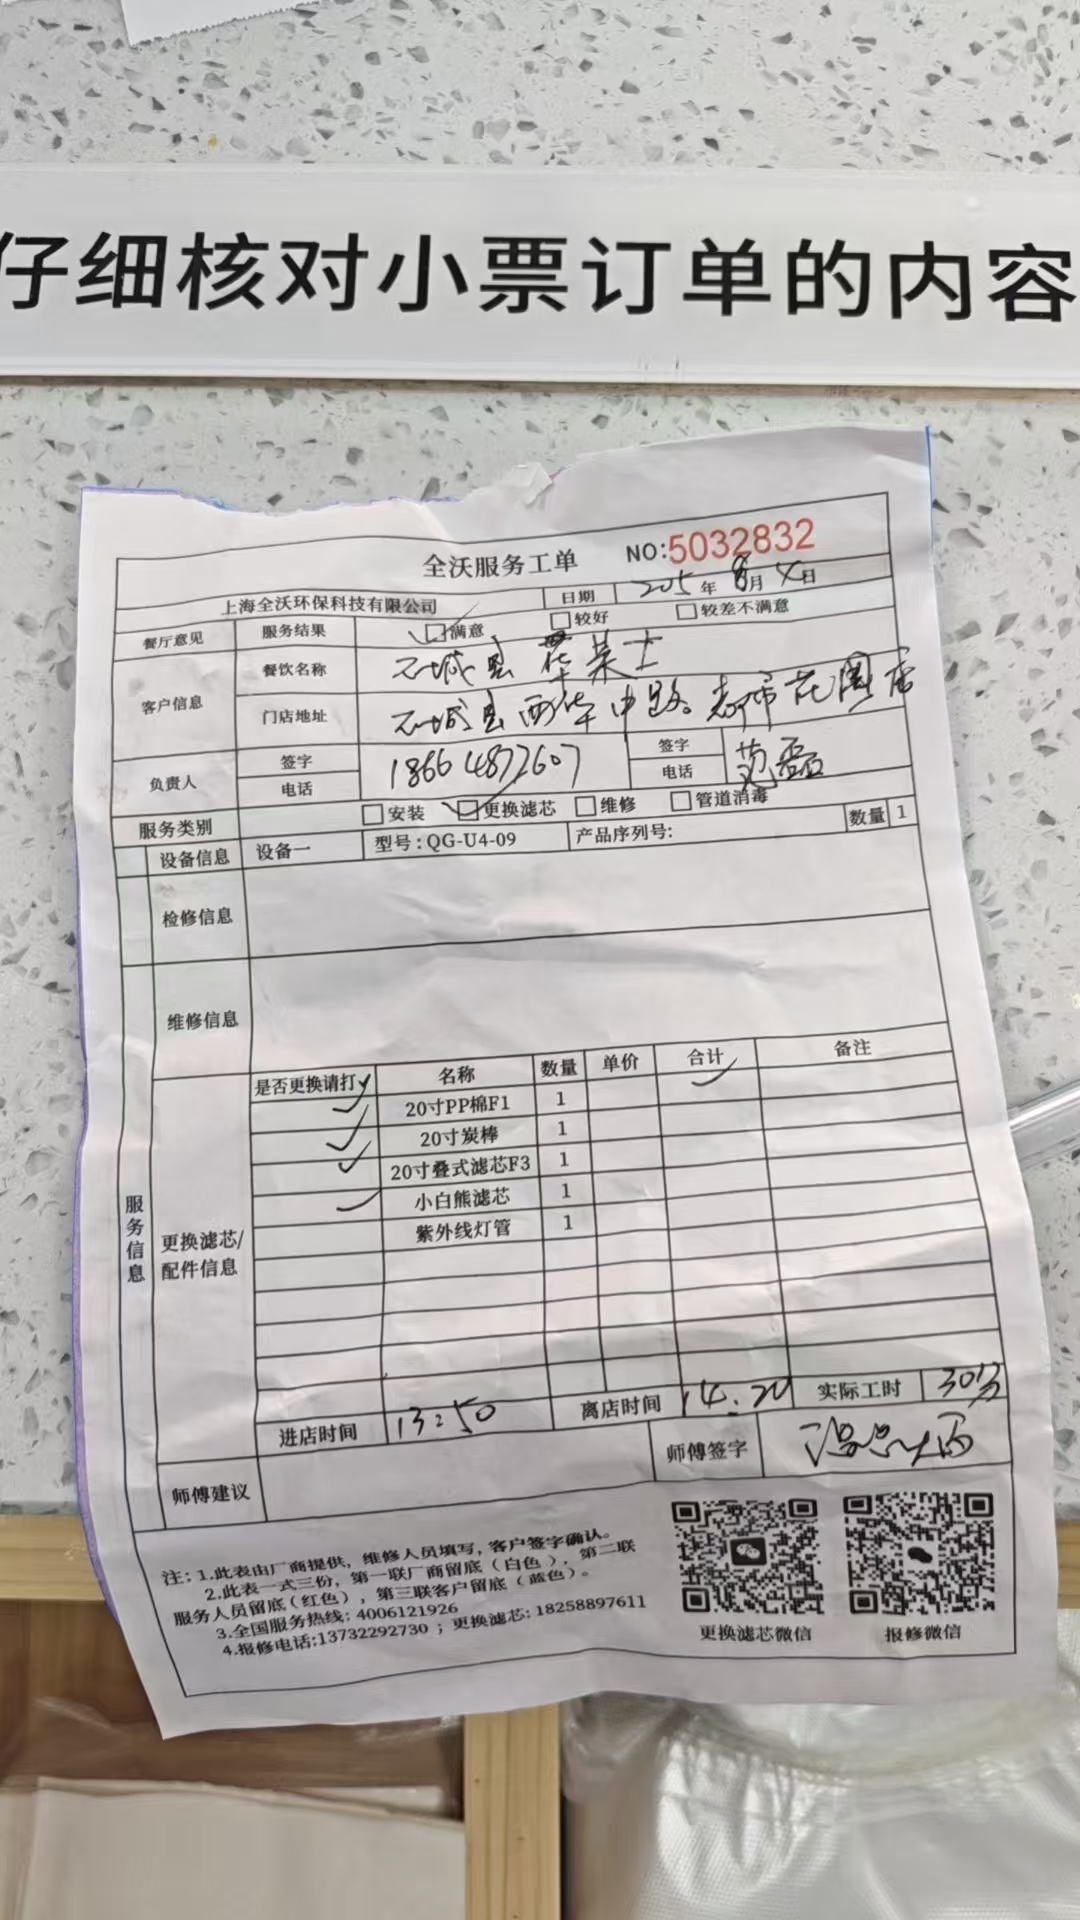 仔细核对小票订单的内容
全沃服务工单 NO:5032832
上海全沃环保科技有限公司 日期 205年8月4日
餐厅意见 服务结果 满意 较好 较差不满意
客户信息 餐饮名称 石城县华莱士
门店地址 石城县西华中路。都市花园店
负责人 签字 电话 18664872607 签字 电话 范磊
服务类别 安装 更换滤芯 维修 管道消毒
设备信息 设备一 型号:QG-U4-09 产品序列号: 数量 1
检修信息
维修信息
服务信息
更换滤芯/配件信息
是否更换请打✓ 名称 数量 单价 合计 备注
✓ 20寸PP棉F1 1
✓ 20寸炭棒 1
✓ 20寸叠式滤芯F3 1
✓ 小白熊滤芯 1
紫外线灯管 1
进店时间 13:50 离店时间 14.20 实际工时 30分
师傅建议 师傅签字
注:1.此表由厂商提供，维修人员填写，客户签字确认。
2.此表一式三份，第一联厂商留底（白色），第二联
服务人员留底(红色)，第三联客户留底（蓝色）。
3.全国服务热线: 4006121926
4.报修电话:13732292730 ；更换滤芯: 18258897611
更换滤芯微信 报修微信